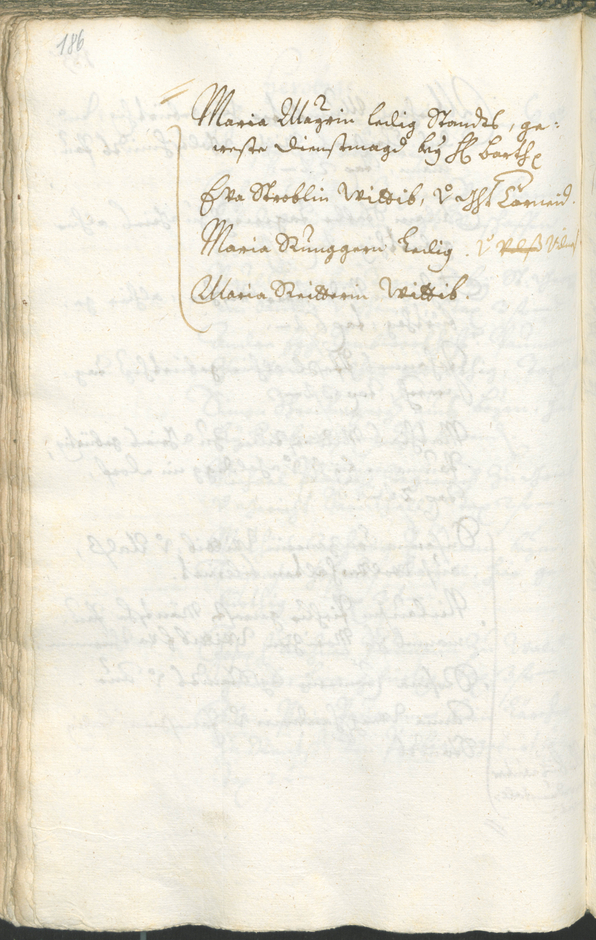 186
Maria Mayrin ledig Standts, ge:
weste Dienstmagd bey H Barth
Eva Stroblin Wittib, v Carneid.
Maria Runggerin Ledig. v
Maria Reitterin Wittib.